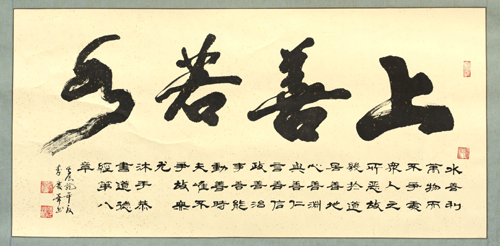 上善若水
水善利
萬物而
不爭處
衆人之
所惡故
幾於道
居善地
心善淵
與善仁
言善信
政善治
事善能
動善時
夫惟不
爭故無
尤
沐手恭
書道德
經第八
章